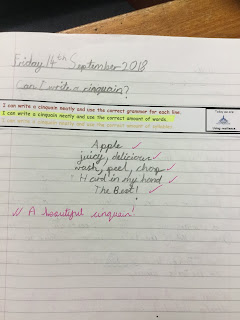 Friday 14th September 2018
Can I write a cinquain?
I can write a cinquain neatly and use the correct grammar for each line.
I can write a cinquain neatly and use the correct amount of words.
I can write a cinquain neatly and use the correct amount of syllables.
Apple
juicy, delicious
wash, peel, chop
Hard in my hand
The Best!
A beautiful cinquain!